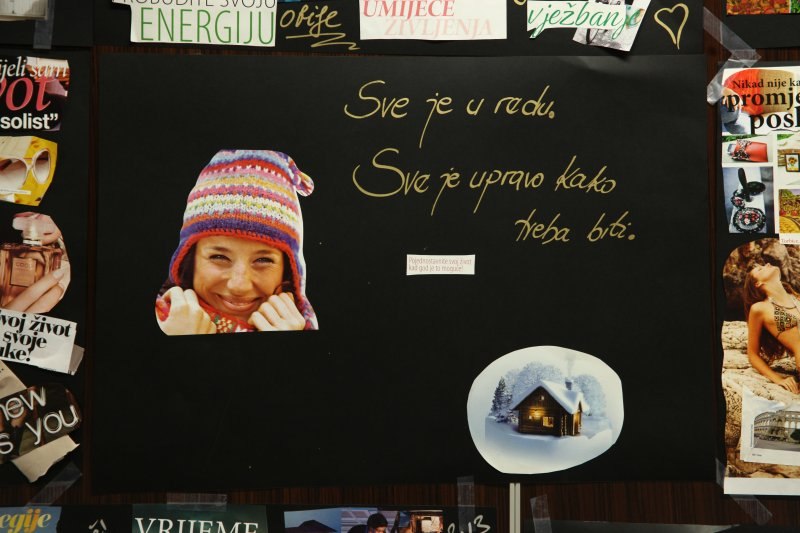 PROBUDITE SVOJU
ENERGIJU
obilje
UMIJEĆE
ŽIVLJENJA
vježbanje
solist”
Nikad nije ka
promje
posl
Sve je u redu.
Sve je upravo kako
treba biti.
Pojednostavnite svoj život
kad god je to moguće!
voj život
svoje
uke!
new
s you
VRIJEME